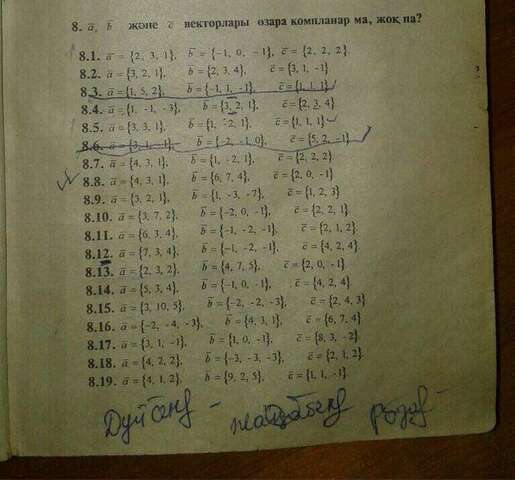 8. a, b және c векторлары өзара компланар ма, жоқ па?
8.1. a = {2, 3, 1}, b = {-1, 0, -1}, c = {2, 2, 2}.
8.2. a = {3, 2, 1}, b = {2, 3, 4}, c = {3, 1, -1}
8.3. a = {1, 5, 2}, b = {-1, 1, -1}, c = {1, 1, 1}
8.4. a = {1, -1, -3}, b = {3, 2, 1}, c = {2, 3, 4}
8.5. a = {3, 3, 1}, b = {1, -2, 1}, c = {1, 1, 1}
8.6. a = {3, 1, -1}, b = {-2, -1, 0}, c = {5, 2, -1}
8.7. a = {4, 3, 1}, b = {1, -2, 1}, c = {2, 2, 2}
8.8. a = {4, 3, 1}, b = {6, 7, 4}, c = {2, 0, -1}
8.9. a = {3, 2, 1}, b = {1, -3, -7}, c = {1, 2, 3}
8.10. a = {3, 7, 2}, b = {-2, 0, -1}, c = {2, 2, 1}
8.11. a = {6, 3, 4}, b = {-1, -2, -1}, c = {2, 1, 2}
8.12. a = {7, 3, 4}, b = {-1, -2, -1}, c = {4, 2, 4}
8.13. a = {2, 3, 2}, b = {4, 7, 5}, c = {2, 0, -1}
8.14. a = {5, 3, 4}, b = {-1, 0, -1}, c = {4, 2, 4}
8.15. a = {3, 10, 5}, b = {-2, -2, -3}, c = {2, 4, 3}
8.16. a = {-2, -4, -3}, b = {4, 3, 1}, c = {6, 7, 4}
8.17. a = {3, 1, -1}, b = {1, 0, -1}, c = {8, 3, -2}
8.18. a = {4, 2, 2}, b = {-3, -3, -3}, c = {2, 1, 2}
8.19. a = {4, 1, 2}, b = {9, 2, 5}, c = {1, 1, -1}